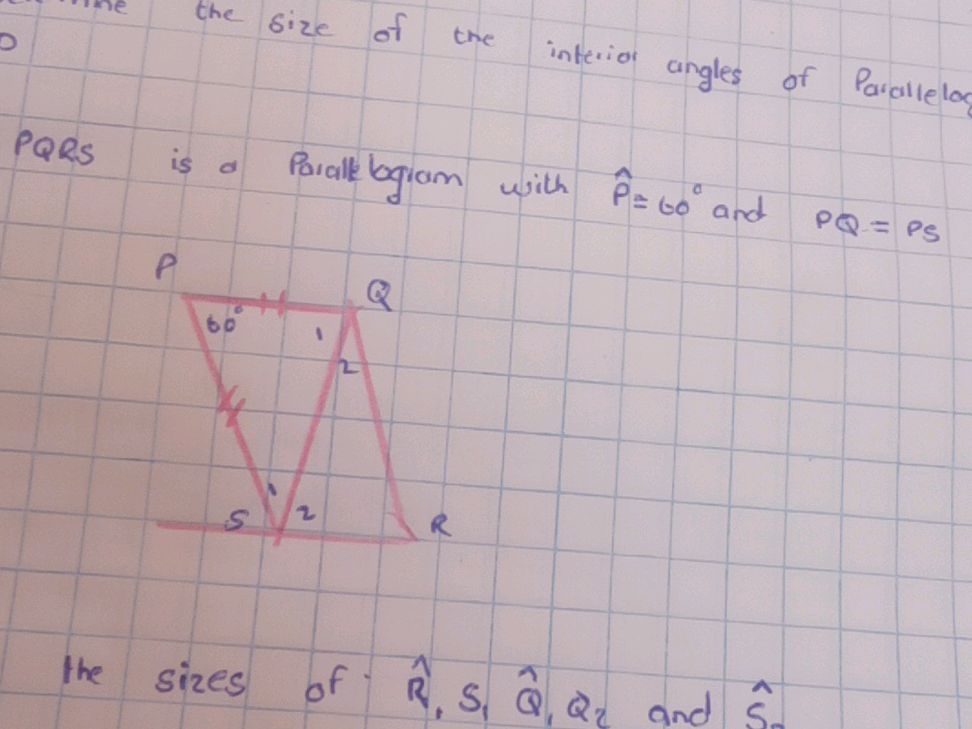 the size of the interior angles of
PQRS is a Parallelogram with P̂ = 60° and PQ = PS
P
Q
60°
1
2
1
S
2
R
the sizes of R̂, S₁ Q̂, Q₂ and Ŝ₂